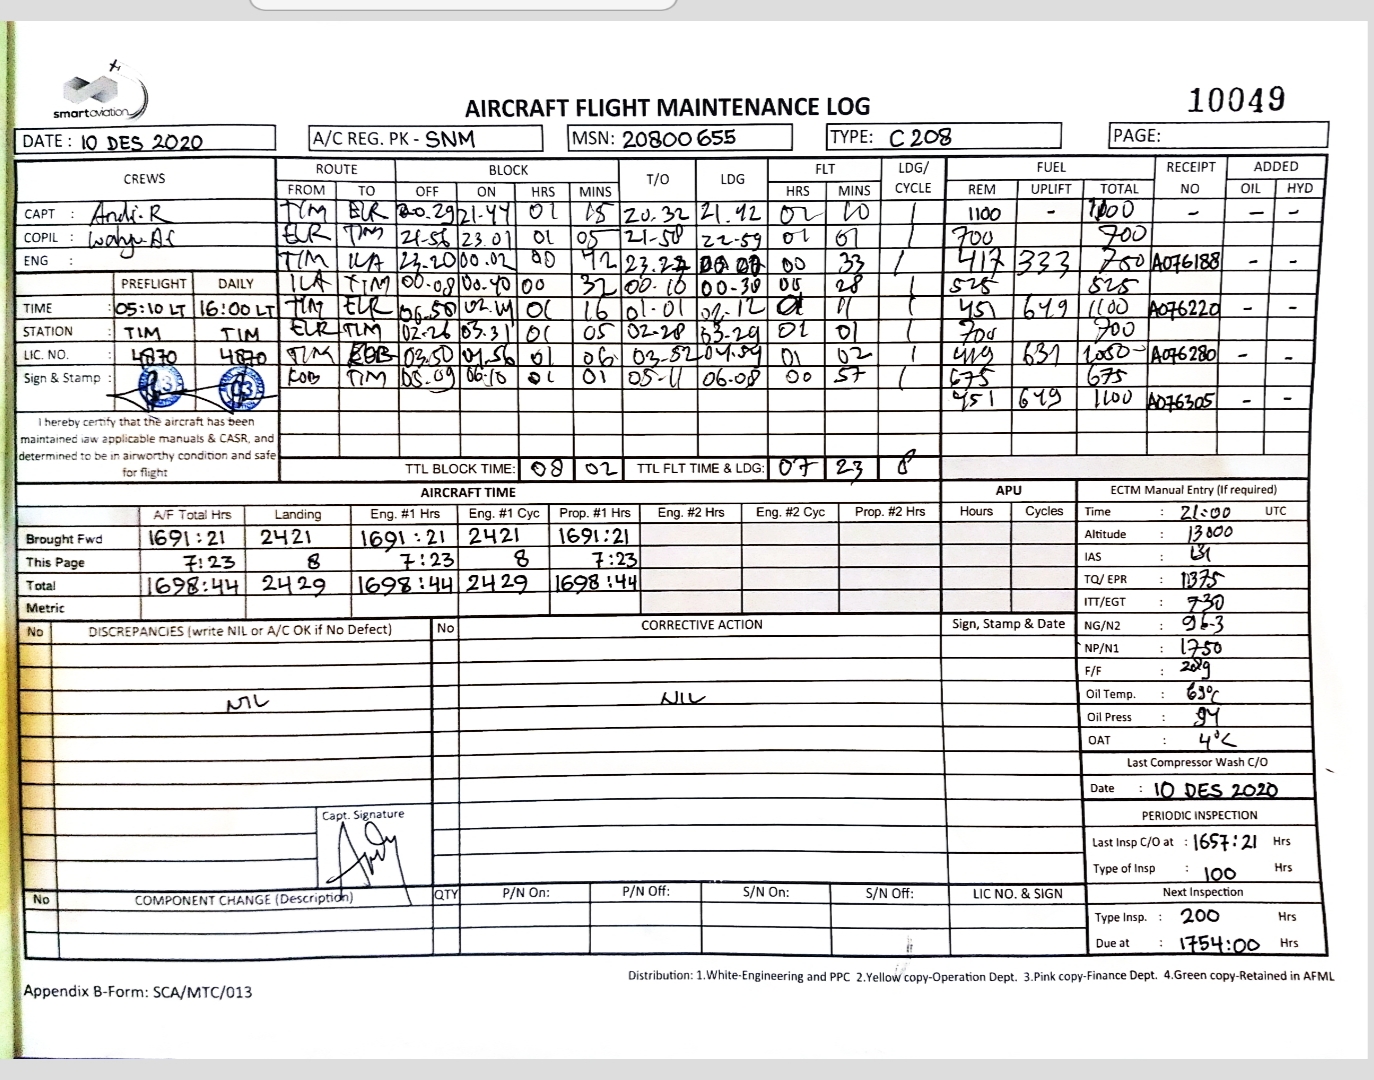 smartaviation
AIRCRAFT FLIGHT MAINTENANCE LOG
10049
DATE : 10 DES 2020 A/C REG. PK - SNM MSN: 20800655 TYPE: C 208 PAGE:
CREWS ROUTE BLOCK T/O LDG FLT LDG/ CYCLE FUEL RECEIPT NO ADDED
FROM TO OFF ON HRS MINS HRS MINS REM UPLIFT TOTAL OIL HYD
CAPT : Andi.R TIM ELR 20.29 21-44 01 15 20.32 21.42 01 10 1 1100 - 1100 - - -
COPIL : ELR TIM 21-56 23.01 01 05 21-58 22-59 01 01 1 700 700
ENG : TIM ILA 23.20 00.02 00 42 00 33 1 417 333 750 A076188 - -
PREFLIGHT DAILY ILA TIM 00-08 00-40 00 32 00-10 00-38 00 28 1 525 525
TIME : 05:10 LT 16:00 LT TIM ELR 16 01-01 02-12 11 1 451 649 1100 A076220 - -
STATION : TIM TIM ELR TIM 02-26 03.31 01 05 02-28 03-29 01 01 1 700 700
LIC. NO. : 4870 4870 TIM 03.50 04.56 01 06 03-52 04.54 01 02 1 419 631 1050 A076280 - -
Sign & Stamp : TIM 05.09 06:10 01 01 05-11 06-08 00 57 1 675 675
451 649 1100 A076305 - -
I hereby certify that the aircraft has been
maintained iaw applicable manuals & CASR, and
determined to be in airworthy condition and safe
for flight
TTL BLOCK TIME: 08 02 TTL FLT TIME & LDG: 07 23 8
AIRCRAFT TIME APU ECTM Manual Entry (If required)
A/F Total Hrs Landing Eng. #1 Hrs Eng. #1 Cyc Prop. #1 Hrs Eng. #2 Hrs Eng. #2 Cyc Prop. #2 Hrs Hours Cycles Time : 21:00 UTC
Brought Fwd 1691:21 2421 1691:21 2421 1691:21 Altitude : 13000
This Page 7:23 8 7:23 8 7:23 IAS : 131
Total 1698:44 2429 1698:44 2429 1698:44 TQ/ EPR : 1375
Metric ITT/EGT : 730
No DISCREPANCIES (write NIL or A/C OK if No Defect) No CORRECTIVE ACTION Sign, Stamp & Date NG/N2 : 96.3
NP/N1 : 1750
F/F :
NIL NIL Oil Temp. : 69°C
Oil Press : 94
OAT : 4°C
Last Compressor Wash C/O
Date : 10 DES 2020
Capt. Signature
PERIODIC INSPECTION
Last Insp C/O at : 1657:21 Hrs
Type of Insp : 100 Hrs
No COMPONENT CHANGE (Description) QTY P/N On: P/N Off: S/N On: S/N Off: LIC NO. & SIGN Next Inspection
Type Insp. : 200 Hrs
Due at : 1754:00 Hrs
Distribution: 1.White-Engineering and PPC 2.Yellow copy-Operation Dept. 3.Pink copy-Finance Dept. 4.Green copy-Retained in AFML
Appendix B-Form: SCA/MTC/013